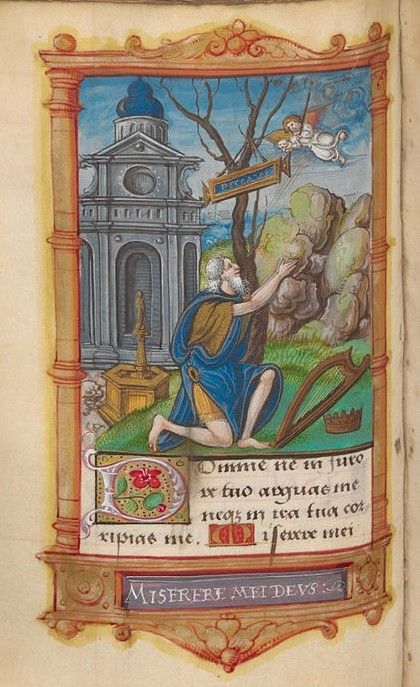 Domine ne in furo
re tuo arguas me
neqz in ira tua cor
ripias me. Miserere mei
MISERERE. MEI DEVS: